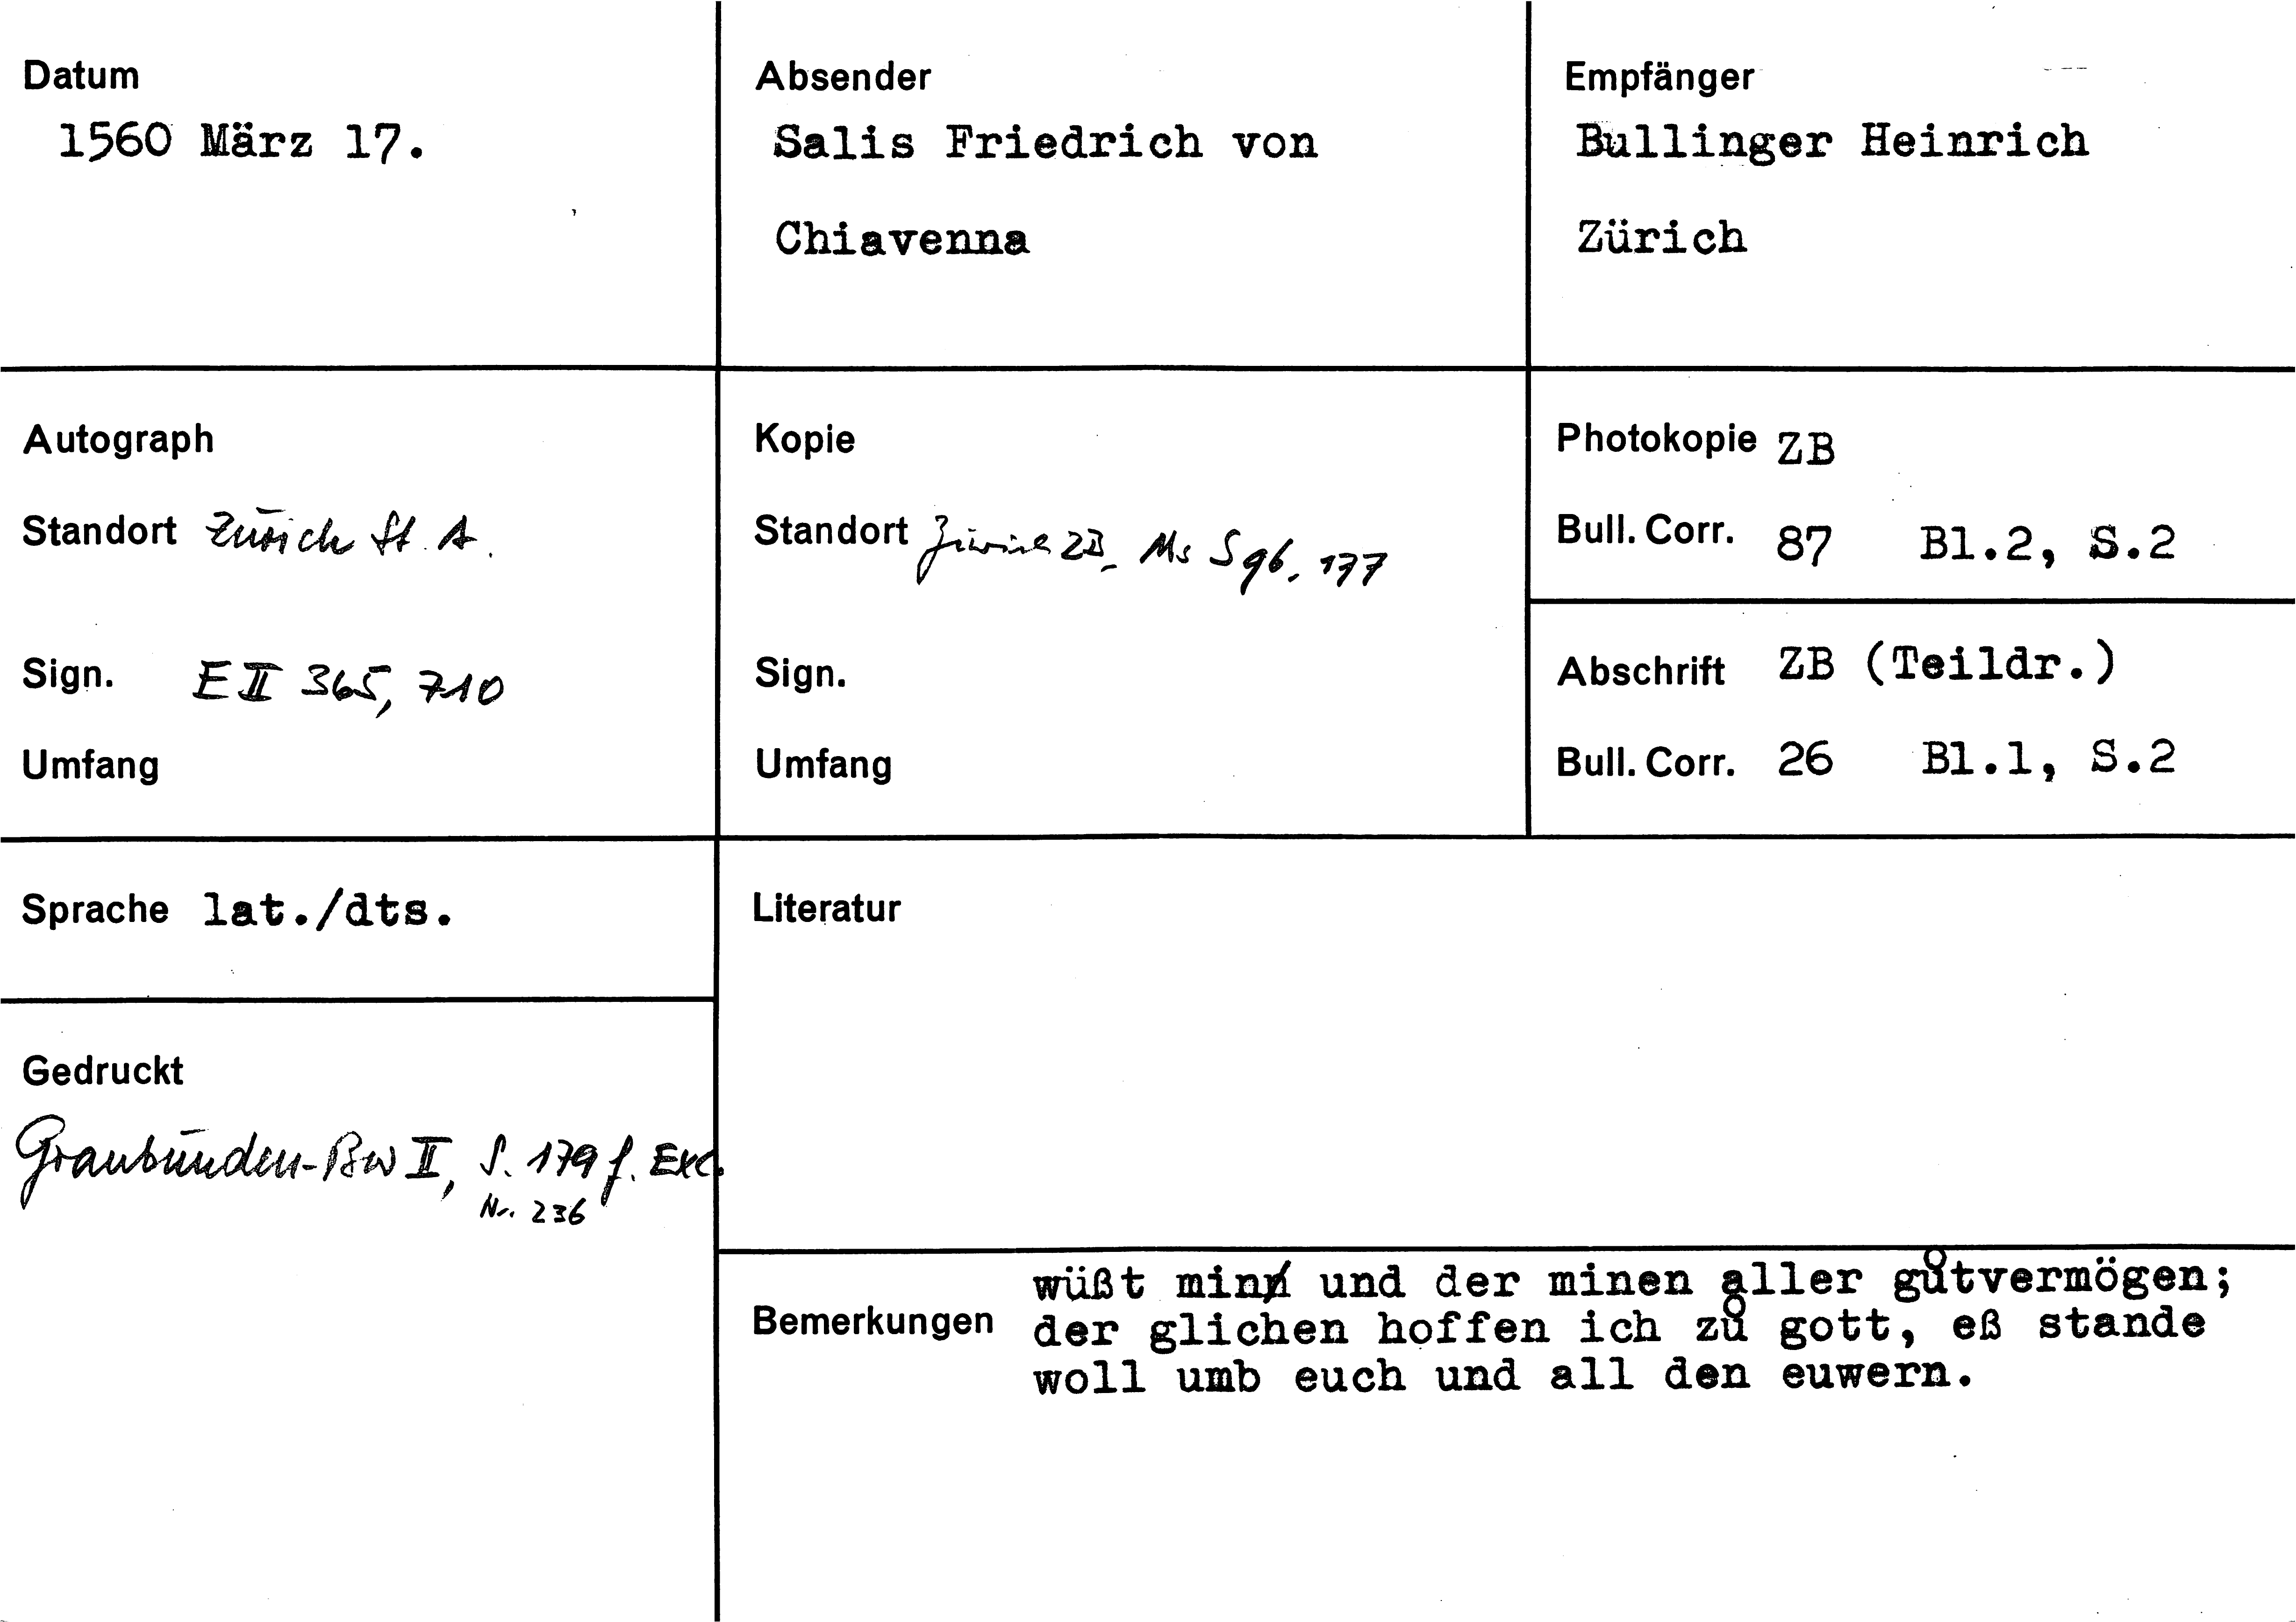 Datum
1560 März 17.
Absender
Salis Friedrich von
Chiavenna
Empfänger
Bullinger Heinrich
Zürich
Autograph
Standort Zürich St. A.
Sign. E II 365, 710
Umfang
Kopie
Standort Zürich ZB, Ms S 96, 177
Sign.
Umfang
Photokopie ZB
Bull. Corr. 87 Bl.2, S.2
Abschrift ZB (Teildr.)
Bull. Corr. 26 Bl.1, S.2
Sprache lat./dts.
Gedruckt
Graubünden-Bw II, S. 179 f. Exc.
Nr. 236
Literatur
Bemerkungen
wüßt min und der minen aller gůtvermögen;
der glichen hoffen ich zů gott, eß stande
woll umb euch und all den euwern.